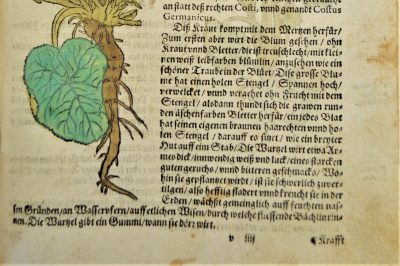 an statt deß rechten Costi, vnnd genandt Costus
Germanicus.
Diß Kraut kompt mit dem Mertzen herfür/
Zum ersten aber wirt die Blum gesehen / ohn
Kraut vnnd Bletter/die ist treuschlecht/mit klei⸗
nen weiß leibfarben blümlin/anzusehen wie ein
schöner Traube in der Blüet/Dise grosse Blu⸗
me hat einen holen Stengel / Spannen hoch/
verwelcket / vnnd vergeht ohn Frücht mit dem
Stengel / alsdann thundt sich die grawen run⸗
den äschenfarben Bletter herfür/ein jedes Blat
hat seinen eigenen braunen haarechten vnnd ho⸗
len Stengel / darauff es sitzet / wie ein breyter
Hut auff ein Stab/Die Wurtzel wirt etwa Ar⸗
mes dick/inwendig weiß vnd luck/eines starcken
guten geruchs / vnnd bitteren geschmacks/ Wo⸗
hin sie gepflantzet wirdt / ist sie schwerlich zuver⸗
tilgen/also hefftig fladert vnnd kreucht sie in der
Erden / wächßt gemeinglich auff feuchten nas⸗
sen Gründen/an Wasservfern/auff etlichen Wisen/durch welche fliessende Bächlin rin⸗
nen. Die Wurtzel gibt ein Gummi/wann sie dörr wirt.
v iiij
¶ Krafft